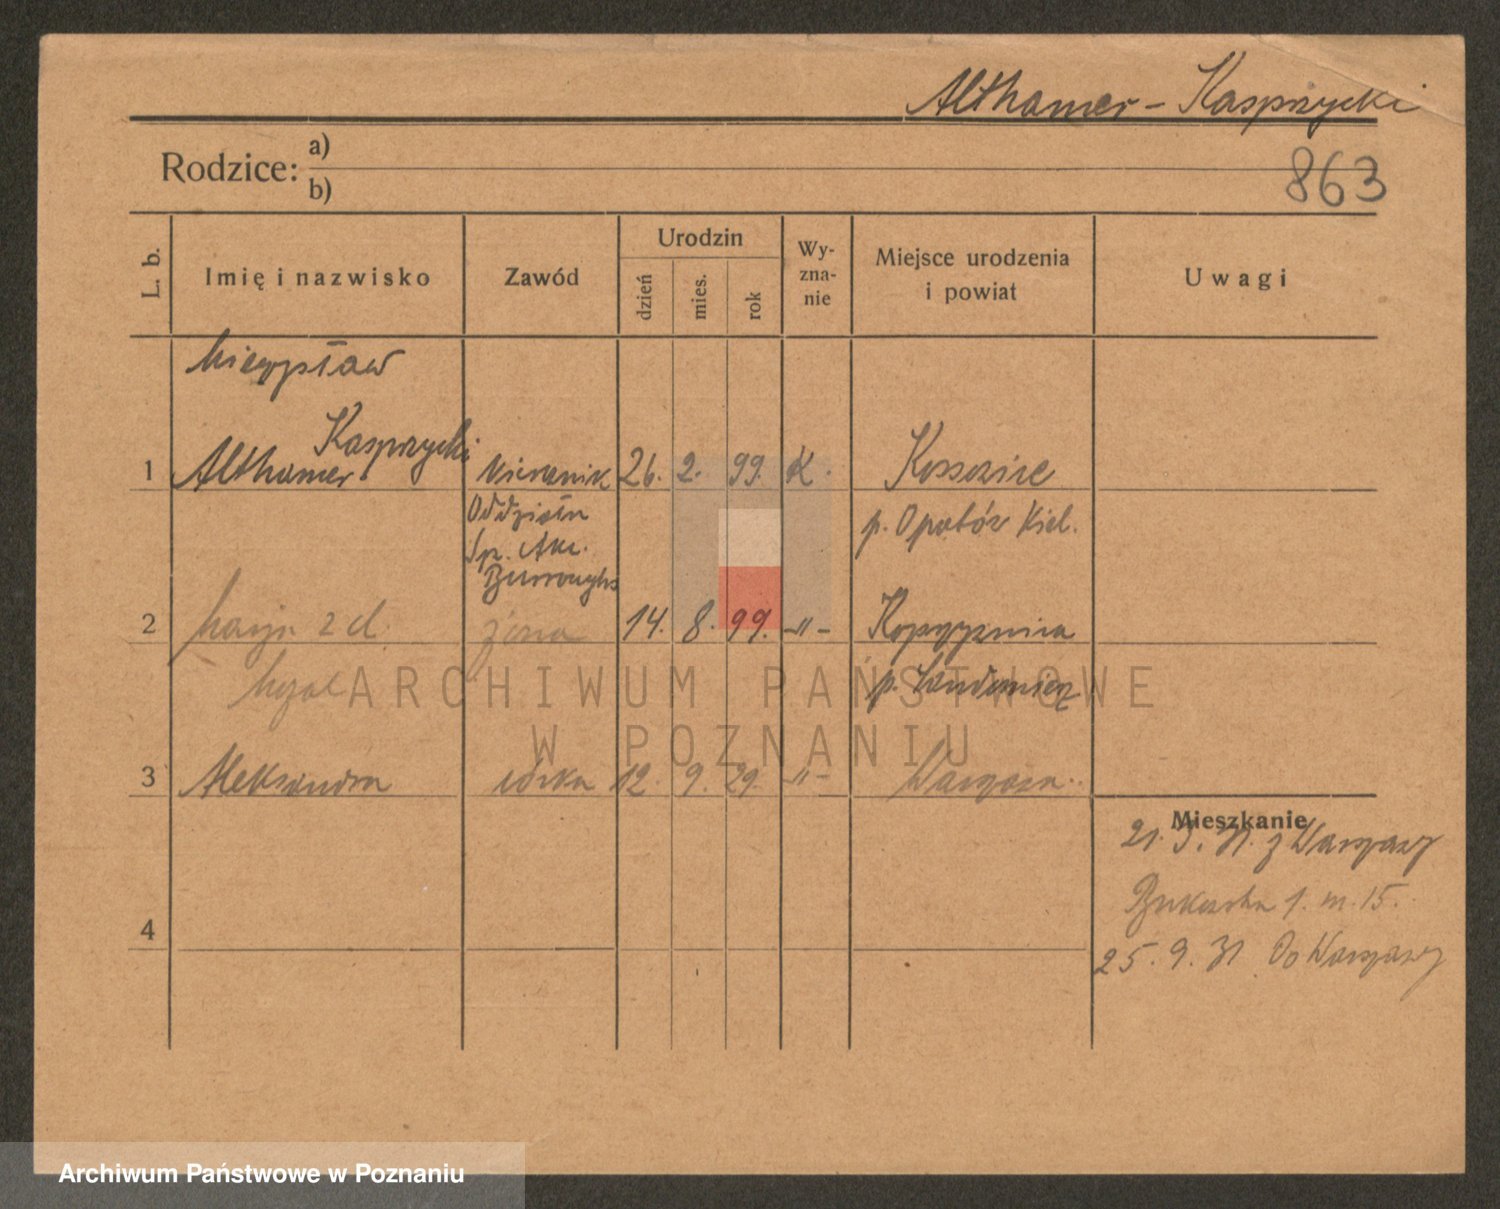 Althamer - Kasprzycki
863
Rodzice: a)
b)
L. b.
Imię i nazwisko
Zawód
Urodzin
dzień
mies.
rok
Wy-
zna-
nie
Miejsce urodzenia
i powiat
Uwagi
Mieczysław
Kasprzycki
1 Althamer Kierownik 26. 2. 99. K.
Oddziału p. Opatów Kiel.
Sp. Akc.
Burroughs
2 Marja z d. żona 14. 8. 99. -"- Koprzywnica
p. Sandomierz
ARCHIWUM PAŃSTWOWE
W POZNANIU
3 Aleksandra córka 12. 9. 29. -"- Warszawa.
Mieszkanie
21. 3. 31. z Warszawy
Bukowska 1. m. 15.
4
25. 9. 31 Do Warszawy
Archiwum Państwowe w Poznaniu